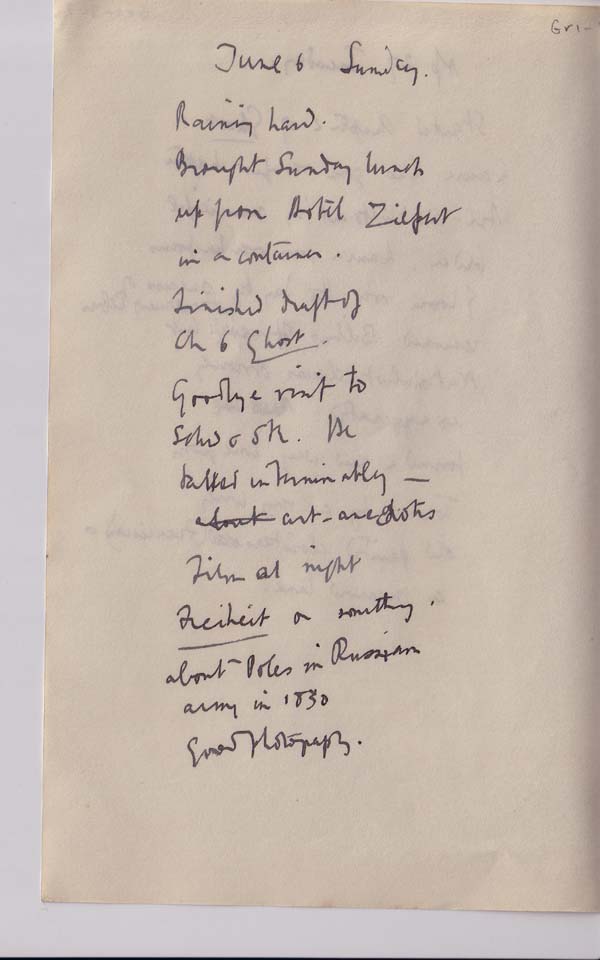 Gr1-
June 6 Sunday.
Raining hard.
Brought Sunday lunch
up from Hotel
in a container.
Finished draft of
Ch 6 Ghost.
Goodbye visit to
He
talked interminably —
about art-anecdotes
Film at night
Freiheit or something.
about Poles in Russian
army in 1830
Good photography.